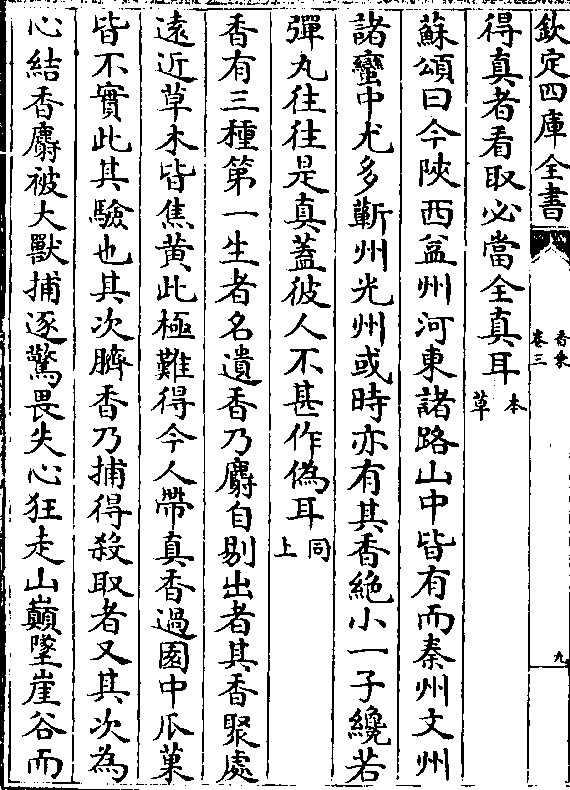 欽定四庫全書
香乗
卷三
九
得真者看取必當全真耳本草
蘇頌曰今陜西益州河東諸路山中皆有而秦州文州
諸蠻中尤多蘄州光州或時亦有其香絶小一子纔若
彈丸往往是真蓋彼人不甚作偽耳同上
香有三種第一生者名遺香乃麝自剔出者其香聚處
遠近草木皆焦黄此極難得今人帶真香過園中瓜菓
皆不實此其驗也其次臍香乃捕得殺取者又其次為
心結香麝被大獸捕逐驚畏失心狂走山巔墜崖谷而